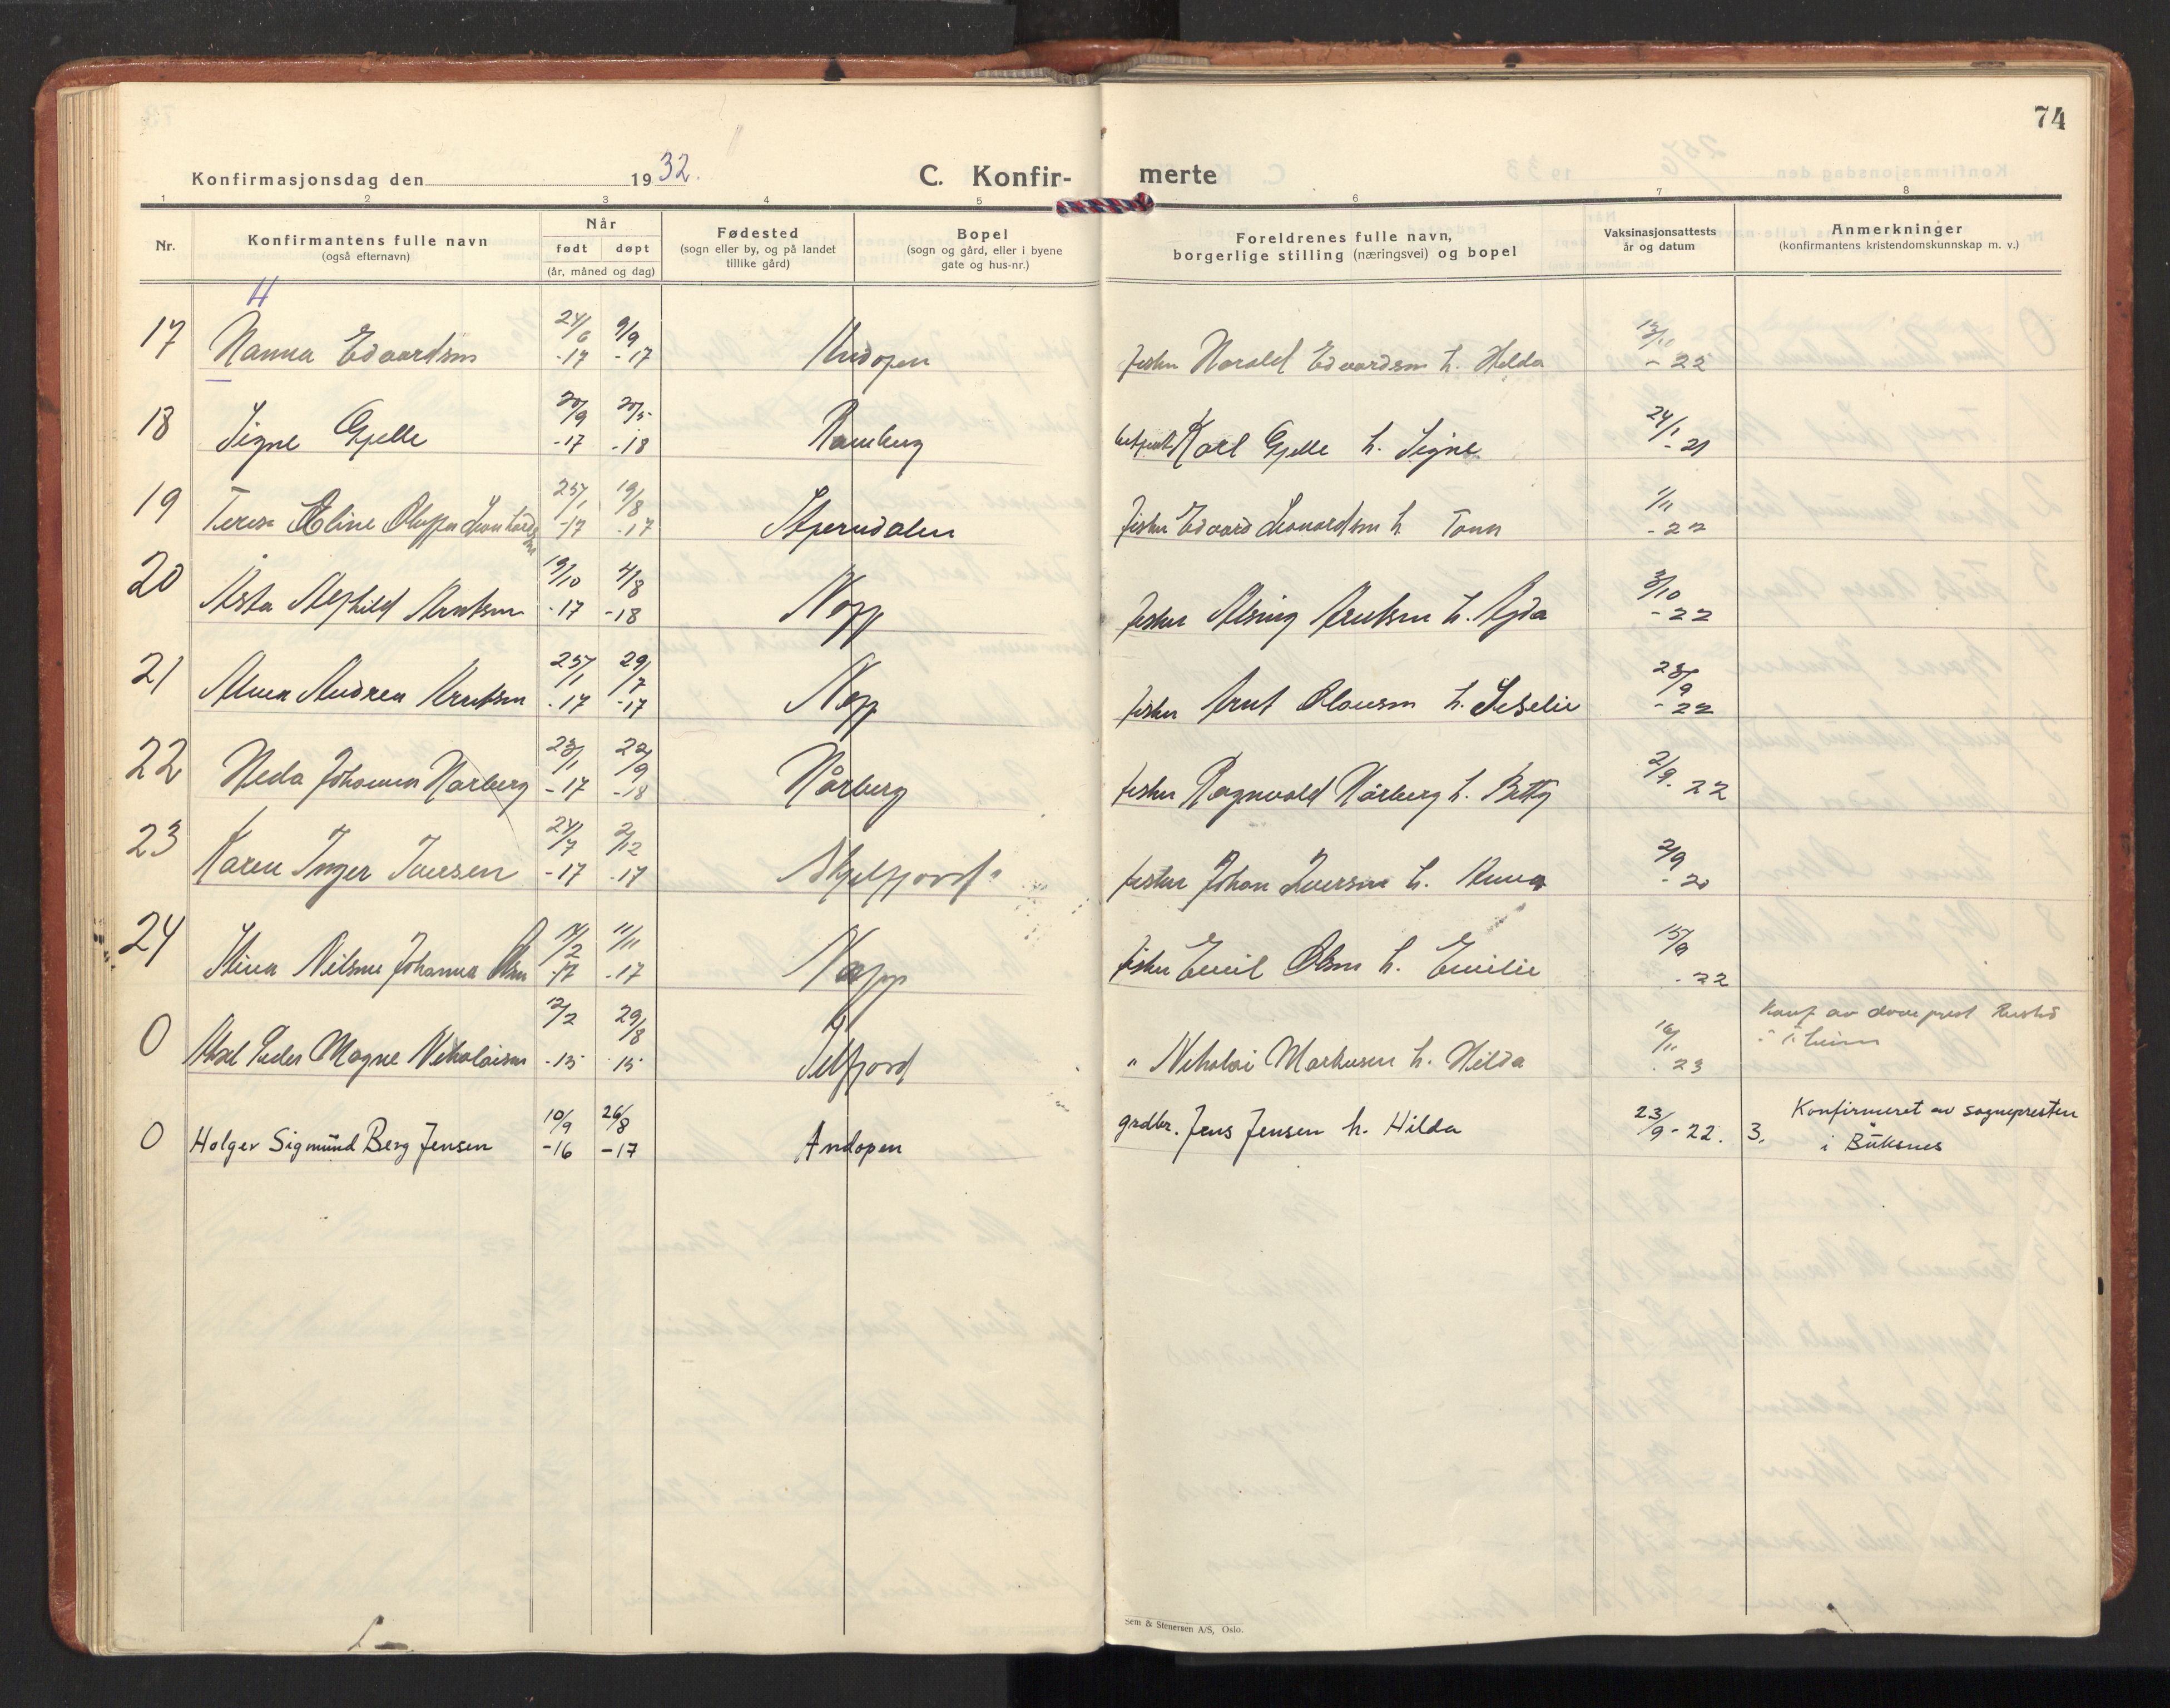 74
Konfirmasjonsdag den 1932. C. Konfir- merte
1 2 3 4 5 6 7 8
Nr. Konfirmantens fulle navn (også efternavn) Når født døpt (år, måned og dag) Fødested (sogn eller by, og på landet tillike gård) Bopel (sogn og gård, eller i byene gate og hus-nr.) Foreldrenes fulle navn, borgerlige stilling (næringsvei) og bopel Vaksinasjonsattests år og datum Anmerkninger (konfirmantens kristendomskunnskap m. v.)
H
17 Hanna Edvardsen 24/6 -17 9/9 -17 Andopen fisker Harald Edvardsen h. Hilda 13/11 - 22
18 Signe Gjelle 20/9 -17 20/5 -18 Ramberg Karl Gjelle h. Signe 24/1 - 21
19 Terese Eline Leonhardsen 25/1 -17 19/8 -17 Stjerndalen fisker Edvard Leonardsen h. 1/11 - 22
20 Asta Alfhild Arntsen 19/10 -17 4/8 -18 Napp fisker Alsing Arntsen h. Ajda 3/10 - 22
21 Alma Andrea Arntsen 25/1 -17 29/7 -17 Napp fisker Arnt Olausen h. 28/9 - 22
22 Heda Johanna Narberg 23/1 -17 22/9 -18 Nårberg fisker Ragnvald Nårberg h. Betty 2/9. 22
23 Karen Inger Iversen 24/7 -17 2/12 -17 Skjelfjord fisker Johan Iversen h. Anna 2/9 - 20
24 Stina Nilsine Johanna Olsen 14/2 -17 11/11 -17 Napp fisker Emil Olsen h. Emilie 15/9 - 22
0 Aksel Peder Magne Nikolaisen 12/2 -15 29/8 15 Selfjord " Nikolai Markusen h. Hilda 16/11 . 23 Konf av døveprest
0 Holger Sigmund Berg Jensen 10/9 -16 26/8 -17 Andopen grdbr. Jens Jensen h. Hilda 23/9 - 22. 3. Konfirmeret av sognepresten
i Buksnes
Sem & Stenersen A/S, Oslo.